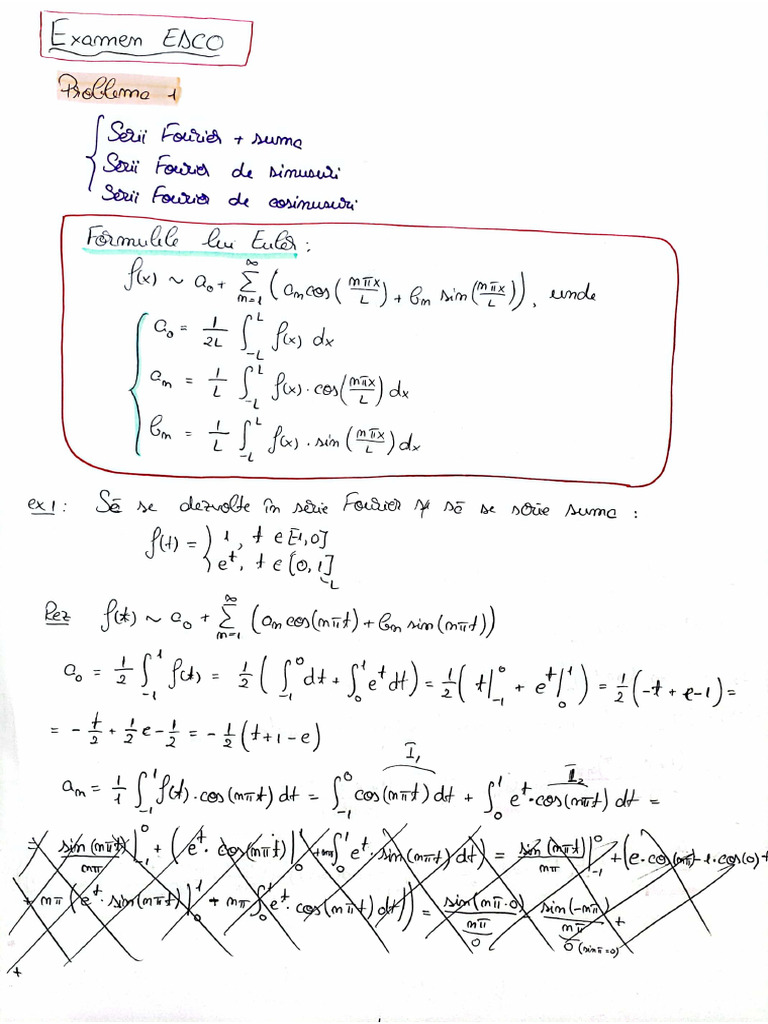 Examen EDCO
Problema 1
Serii Fourier + suma
Serii Fourier de sinusuri
Serii Fourier de cosinusuri
Formulele lui Euler:
f(x) ~ a₀ + ∑_{m=1}^{∞} (a_m cos(mπx/L) + b_m sin(mπx/L)), unde
a₀ = 1/2L ∫_{-L}^{L} f(x) dx
a_m = 1/L ∫_{-L}^{L} f(x)·cos(mπx/L) dx
b_m = 1/L ∫_{-L}^{L} f(x)·sin(mπx/L) dx
ex1: Să se dezvolte în serie Fourier și să se scrie suma:
f(t) = { 1, t ∈ [-1,0]
e^t, t ∈ [0,1]
-L
Rez f(t) ~ a₀ + ∑_{m=1}^{∞} (a_m cos(mπt) + b_m sin(mπt))
a₀ = 1/2 ∫_{-1}^{1} f(t) = 1/2 (∫_{-1}^{0} dt + ∫_{0}^{1} e^t dt) = 1/2 (t|_{-1}^{0} + e^t|_{0}^{1}) = 1/2 (-t + e - 1) =
= -t/2 + 1/2 e - 1/2 = -1/2 (t + 1 - e)
I₁ I₂
a_m = 1/1 ∫_{-1}^{1} f(t)·cos(mπt) dt = ∫_{-1}^{0} cos(mπt) dt + ∫_{0}^{1} e^t·cos(mπt) dt =
= sin(mπt)/mπ |_{-1}^{0} + (e^t·cos(mπt)|_{0}^{1} + mπ ∫_{0}^{1} e^t·sin(mπt) dt) = sin(mπt)/mπ |_{-1}^{0} + (e·cos(mπ) - 1·cos(0) +
+ mπ (e^t·sin(mπt)|_{0}^{1} + mπ ∫_{0}^{1} e^t·cos(mπt) dt)) = sin(mπ·0)/mπ sin(-mπ)/mπ +
0 0 (sinπ=0)
+